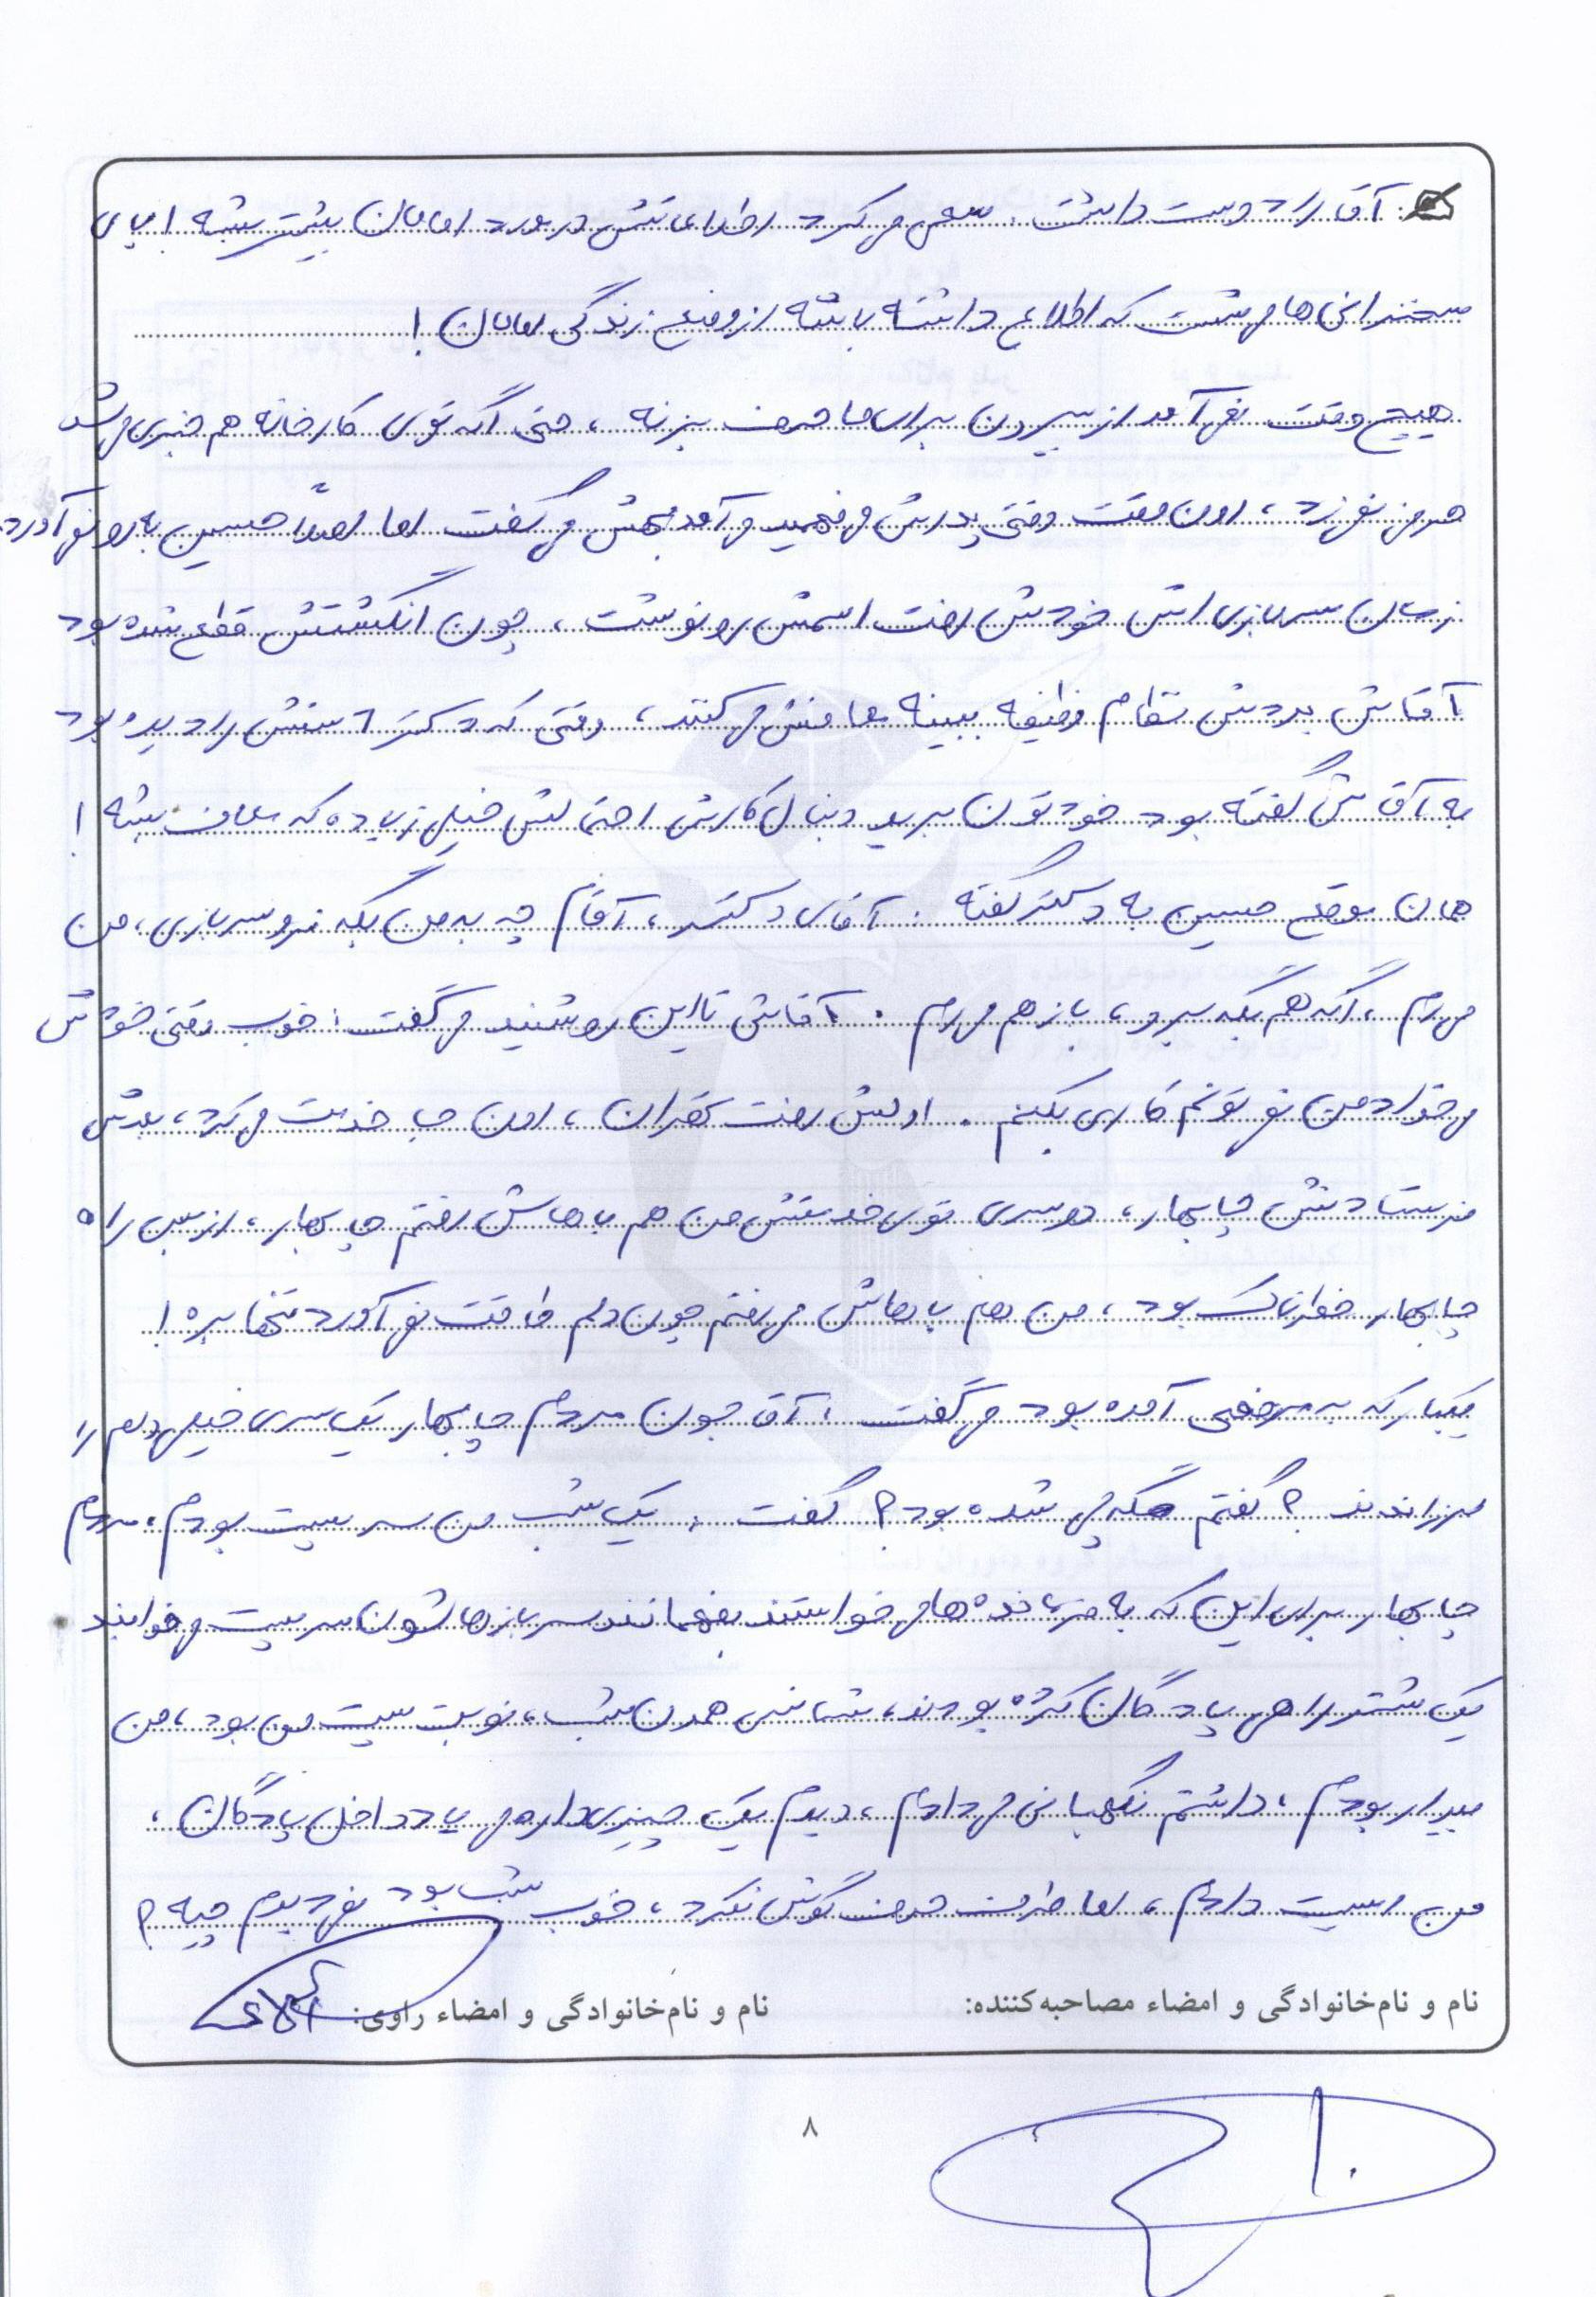 آقا را دوست داشت. سعی می کرد اطلاعاتش در مورد امامان بیشتر بشه! پای
سخنرانی ها می نشست که اطلاع داشته باشه از وضع زندگی امامان!
هیچ وقت نمی آمد از بیرون برای ما حرف بزنه، حتی اگه توی کارخانه هم خبری می شد
حرفی نمی زد، اون وقت وقتی پدرش می فهمید می آمد بهش می گفت اما اصلاً حسین به رو نمی آورد.
زمان سربازی اش خودش رفت اسمش رو نوشت، چون انگشتش قطع شده بود
آقاش بردش نظام وظیفه ببینه معافش می کنند، وقتی که دکتر دستش را دیده بود
به آقاش گفته بود خودتون برید دنبال کارش احتمالش خیلی زیاده که معاف بشه!
همان موقع حسین به دکتر گفته: آقای دکتر، آقام چه به من بگه نرو سربازی، من
می رم، اگه هم بگه برو، باز هم می رم. آقاش تا این رو شنید می گفت: خوب وقتی خودش
می خواد من نمی تونم کاری بکنم. اولش رفت تهران، اون جا خدمت می کرد، بعدش
فرستادنش چابهار، دوسری توی خدمتش من هم باهاش رفتم چابهار، از بس راه
چابهار خطرناک بود، من هم باهاش می رفتم چون دلم طاقت نمی آورد تنها بره!
یکبار که به مرخصی آمده بود می گفت: آقا جون مردم چابهار یک سری خیلی دلم را
لرزاندند؟ گفتم مگه چی شده بود؟ گفت: یک شب من سر پست بودم، مردم
چابهار برای این که به فرمانده ها می خواستند بفهمانند سربازهاشون سر پست می خوابند
یک شتر راهی پادگان کرده بودند، شانس همون شب، نوبت پست من بود، من
بیدار بودم، داشتم نگهبانی می دادم، دیدم یک چیزی داره می یاد داخل پادگان،
من ایست دادم، اما طرف حرف گوش نکرد، خوب شب بود نمی دیدم چیه؟
نام و نام‌خانوادگی و امضاء مصاحبه‌کننده: نام و نام‌خانوادگی و امضاء راوی:
۸